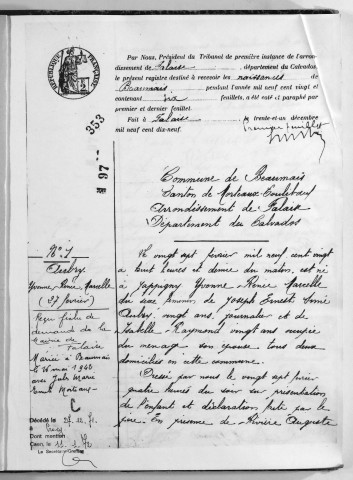 RÉPUBLIQUE FRANÇAISE
Par Nous, Président du Tribunal de première instance de l'arron-
dissement de Falaise, département du Calvados,
le présent registre destiné à recevoir les naissances de
Beaumais pendant l'année mil neuf cent vingt et
contenant six feuillets, a été coté et paraphé par
premier et dernier feuillet.
Fait à Falaise, le trente-et-un décembre
mil neuf cent dix-neuf.
premier feuillet
353
97
Commune de Beaumais
Canton de Morteaux Coulibœuf
Arrondissement de Falaise
Département du Calvados
N° 1
Aubry
Yvonne Renée Marcelle
(27 février)
Le vingt sept février mil neuf cent vingt
à huit heures et demie du matin, est née
à Jappigny Yvonne Renée Marcelle
du sexe féminin de Joseph Ernest Aimé
Aubry, vingt ans, journalier et de
Raymond vingt ans occupée
du ménage son épouse tous deux
domiciliés en cette commune.
Dressé par nous le vingt sept février
quatre heures du soir sur présentation
de l'enfant et déclaration faite par le
père. En présence de Rivière Auguste
Mairie de
Falaise
Mariée à Beaumais
le 16 mai 1940
avec Jules Marie
C
Décédé le
à
Dont mention
Caen, le
Le Secrétaire-Greffier